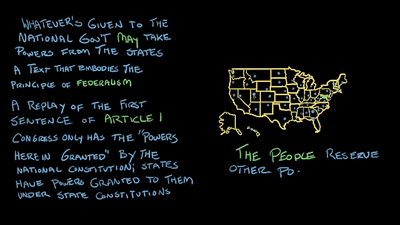 WHATEVER'S GIVEN TO THE
NATIONAL GOV'T MAY TAKE
POWERS FROM THE STATES
A TEXT THAT EMBODIES THE
PRINCIPLE OF FEDERALISM
A REPLAY OF THE FIRST
SENTENCE OF ARTICLE I
CONGRESS ONLY HAS THE "POWERS
HEREIN GRANTED" BY THE
NATIONAL CONSTITUTION; STATES
HAVE POWERS GRANTED TO THEM
UNDER STATE CONSTITUTIONS
THE PEOPLE RESERVE
OTHER PO.